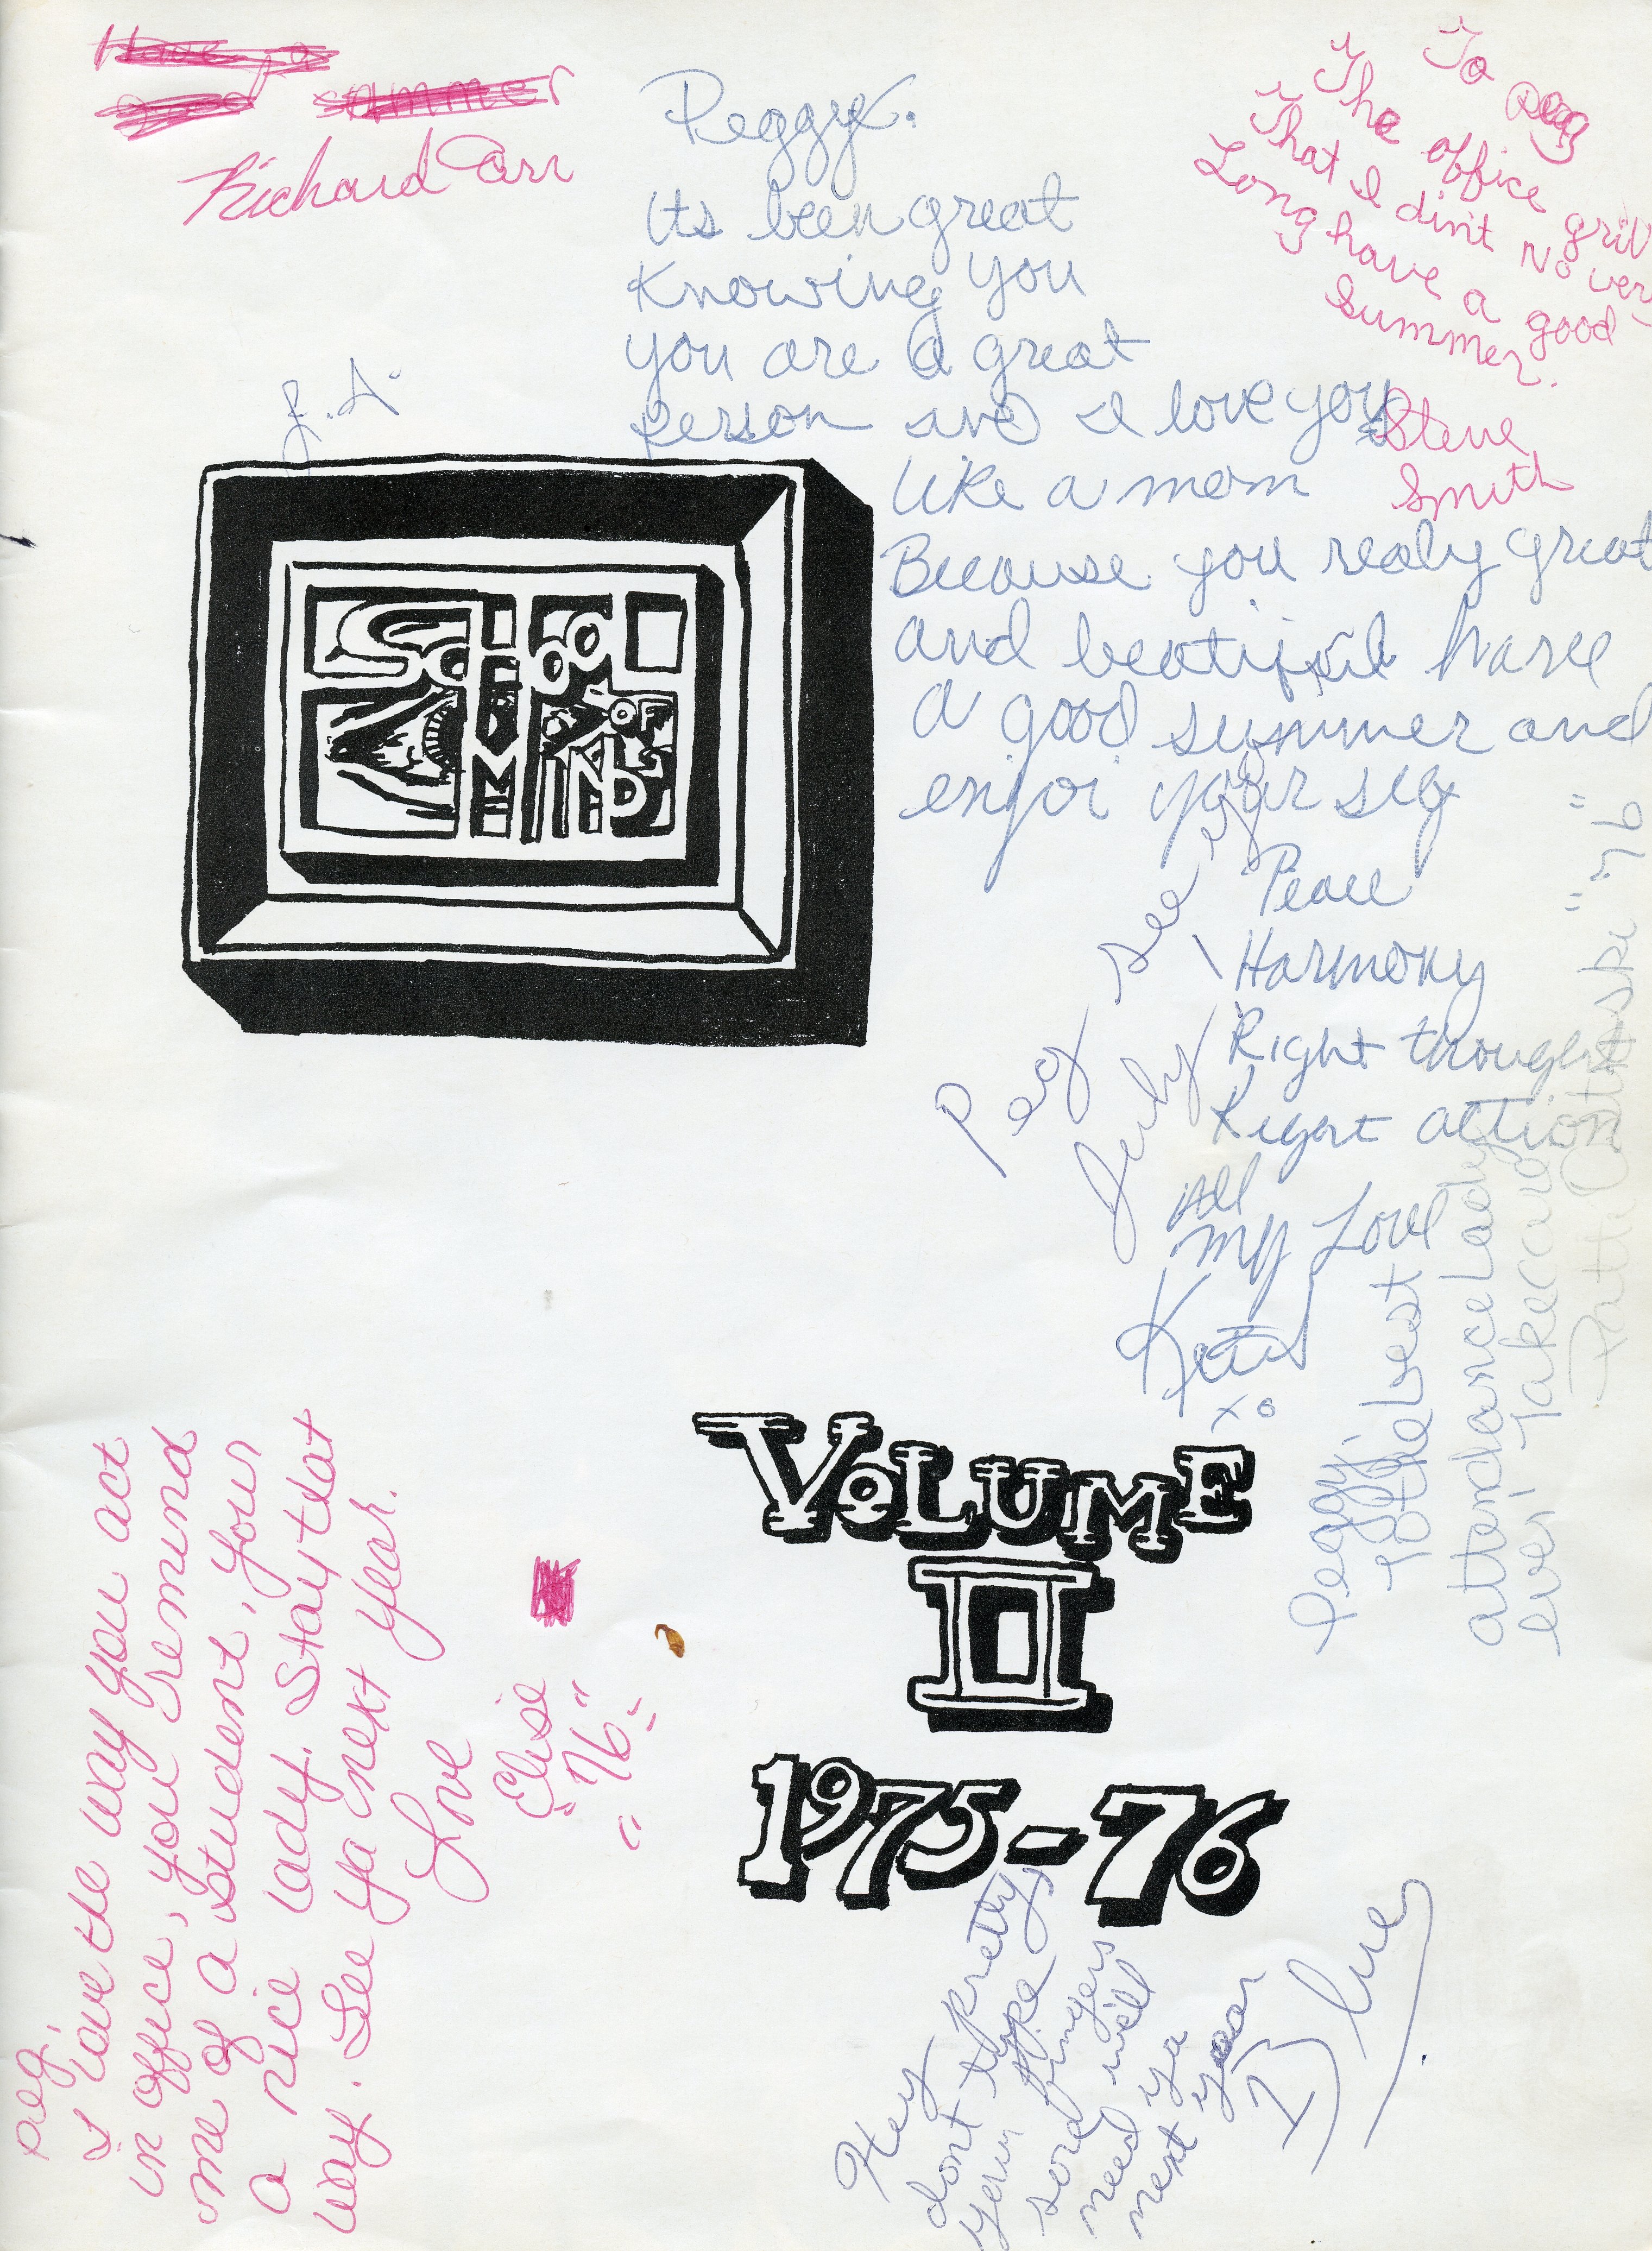 Have a
good summer
Richard Orr
Peggy.
Its been great
Knowing you
you are a great
person and I love you
like a mom
Because you realy great
and beatifil have
a good summer and
enjoi your self
Peace
Harmony
Right thought
Right action
All
my Love
x o
To peg
The office gril
That I din't No very
Long have a good
summer.
Steve
Smith
SCHOOL
OF
MIND
Peg see ya
July
Peggy,
To the best
attendance Lady
ever, Take care
Patti
"76"
VOLUME
II
1975-76
peg,
I love the way you act
in office, you remind
me of a student, your
a nice lady. Stay that
way. See ya next year.
Love
Elise
"76"
Hey pretty,
dont type
your fingers
sore will
need ya
next year
Blue